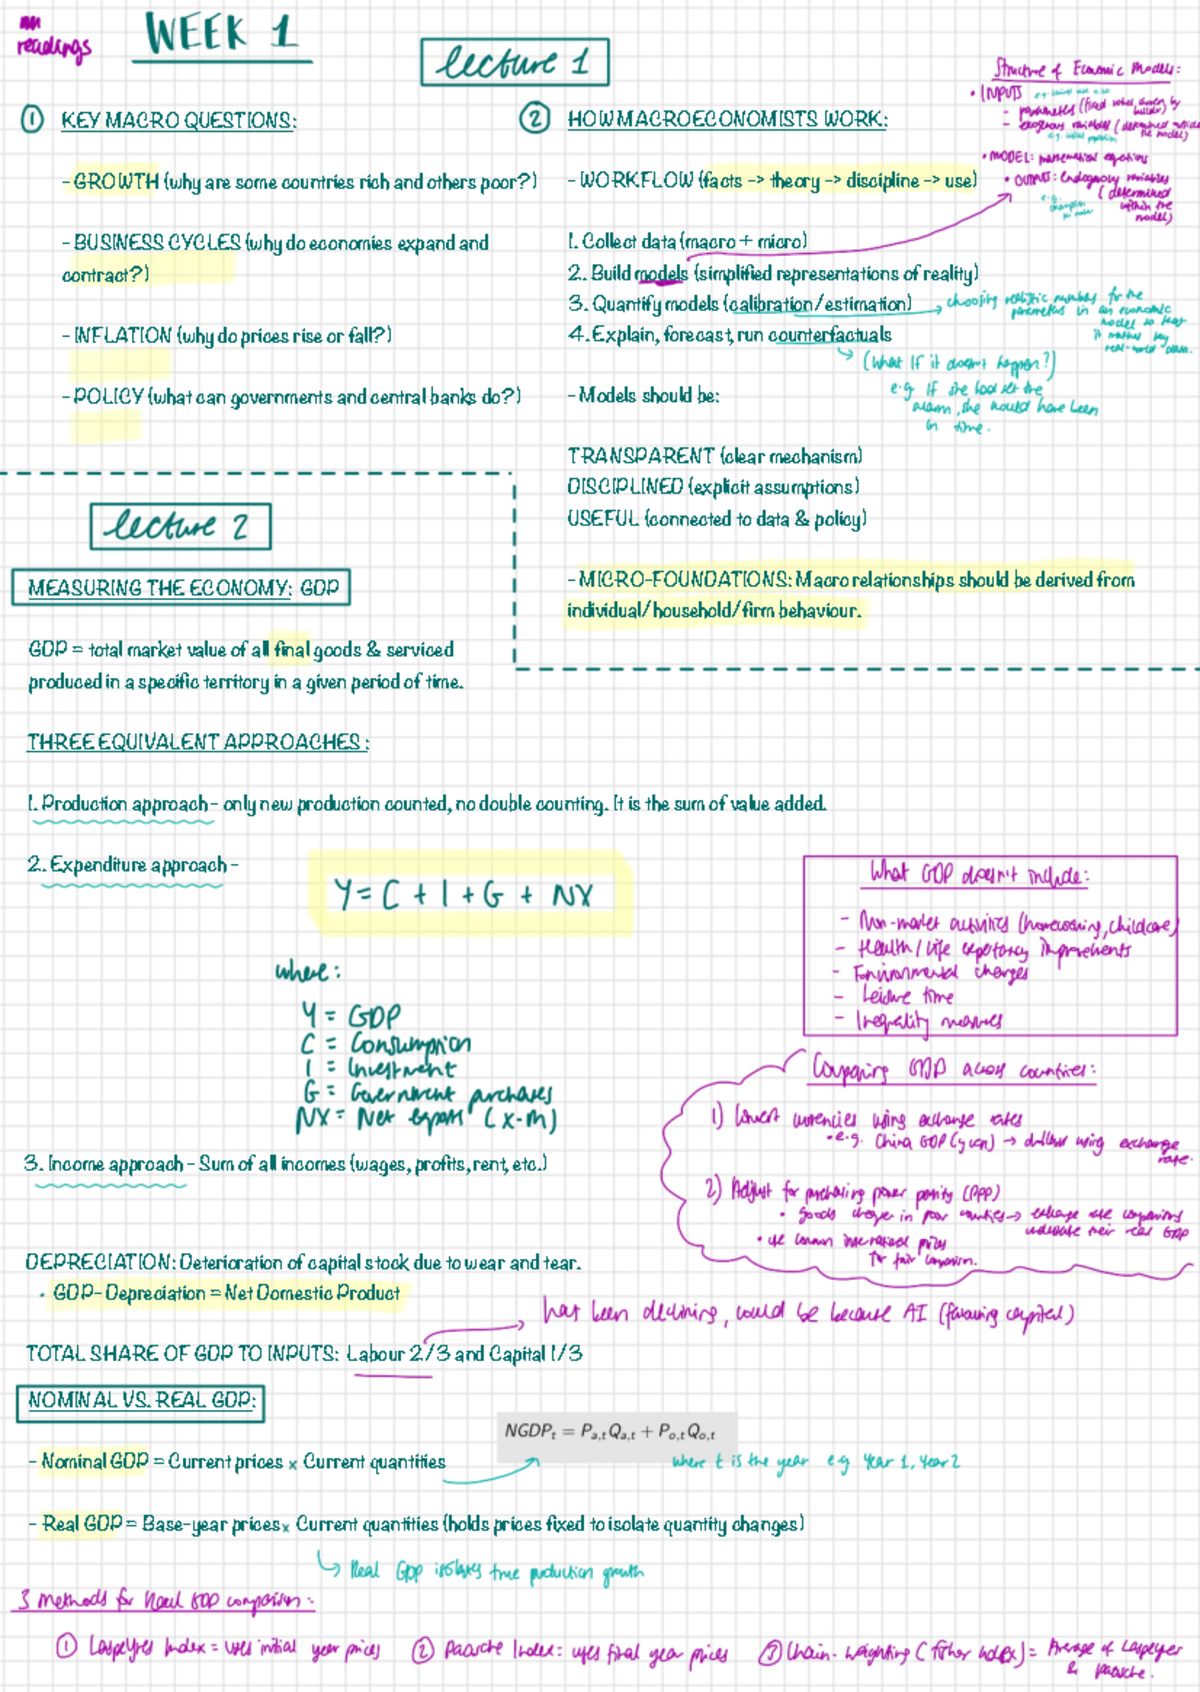 readings
WEEK 1
lecture 1
① KEY MACRO QUESTIONS:
- GROWTH (why are some countries rich and others poor?)
- BUSINESS CYCLES (why do economies expand and
contract?)
- INFLATION (why do prices rise or fall?)
- POLICY (what can governments and central banks do?)
② HOW MACROECONOMISTS WORK:
- WORKFLOW (facts -> theory -> discipline -> use)
1. Collect data (macro + micro)
2. Build models (simplified representations of reality)
3. Quantify models (calibration/estimation)
4. Explain, forecast, run counterfactuals
choosing realistic numbers for the
parameters in an economic
model so that
it matches key
real-world data.
(What if it doesn't happen?)
e.g if she had set the
alarm, she would have been
in time.
- Models should be:
TRANSPARENT (clear mechanism)
DISCIPLINED (explicit assumptions)
USEFUL (connected to data & policy)
- MICRO-FOUNDATIONS: Macro relationships should be derived from
individual/household/firm behaviour.
Structure of Economic Models:
• INPUTS
- parameters (fixed values chosen by
builder)
- exogenous variables (determined outside
the model)
e.g. initial population
• MODEL: mathematical equations
• OUTPUTS: Endogenous variables
(determined
within the
model)
e.g.
lecture 2
MEASURING THE ECONOMY: GDP
GDP = total market value of all final goods & serviced
produced in a specific territory in a given period of time.
THREE EQUIVALENT APPROACHES :
1. Production approach - only new production counted, no double counting. It is the sum of value added.
2. Expenditure approach -
Y = C + I + G + NX
where:
Y = GDP
C = Consumption
I = Investment
G = Government purchases
NX = Net exports (X-M)
3. Income approach - Sum of all incomes (wages, profits, rent, etc.)
What GDP doesn't include:
- Non-market activities (homecooking, childcare)
- Health/life expectancy improvements
- Environmental changes
- Leisure time
- Inequality measures
Comparing GDP across countries:
1) Convert currencies using exchange rates
• e.g. China GDP (yuan) → dollars using exchange
rate.
2) Adjust for purchasing power parity (PPP)
• goods cheaper in poor countries → exchange rate comparisons
understate their real GDP
• use common international prices
for fair comparison.
DEPRECIATION: Deterioration of capital stock due to wear and tear.
• GDP - Depreciation = Net Domestic Product
has been declining, could be because AI (favouring capital)
TOTAL SHARE OF GDP TO INPUTS: Labour 2/3 and Capital 1/3
NOMINAL VS. REAL GDP:
NGDPt = Pa,t Qa,t + Po,t Qo,t
- Nominal GDP = Current prices x Current quantities
where t is the year e.g Year 1, Year 2
- Real GDP = Base-year prices x Current quantities (holds prices fixed to isolate quantity changes)
Real GDP isolates true production growth
3 methods for Real GDP comparison:
① Laspeyres Index = uses initial year prices
② Paasche Index: uses final year prices
③ Chain-weighting (Fisher index) = Average of Laspeyer
& Paasche.